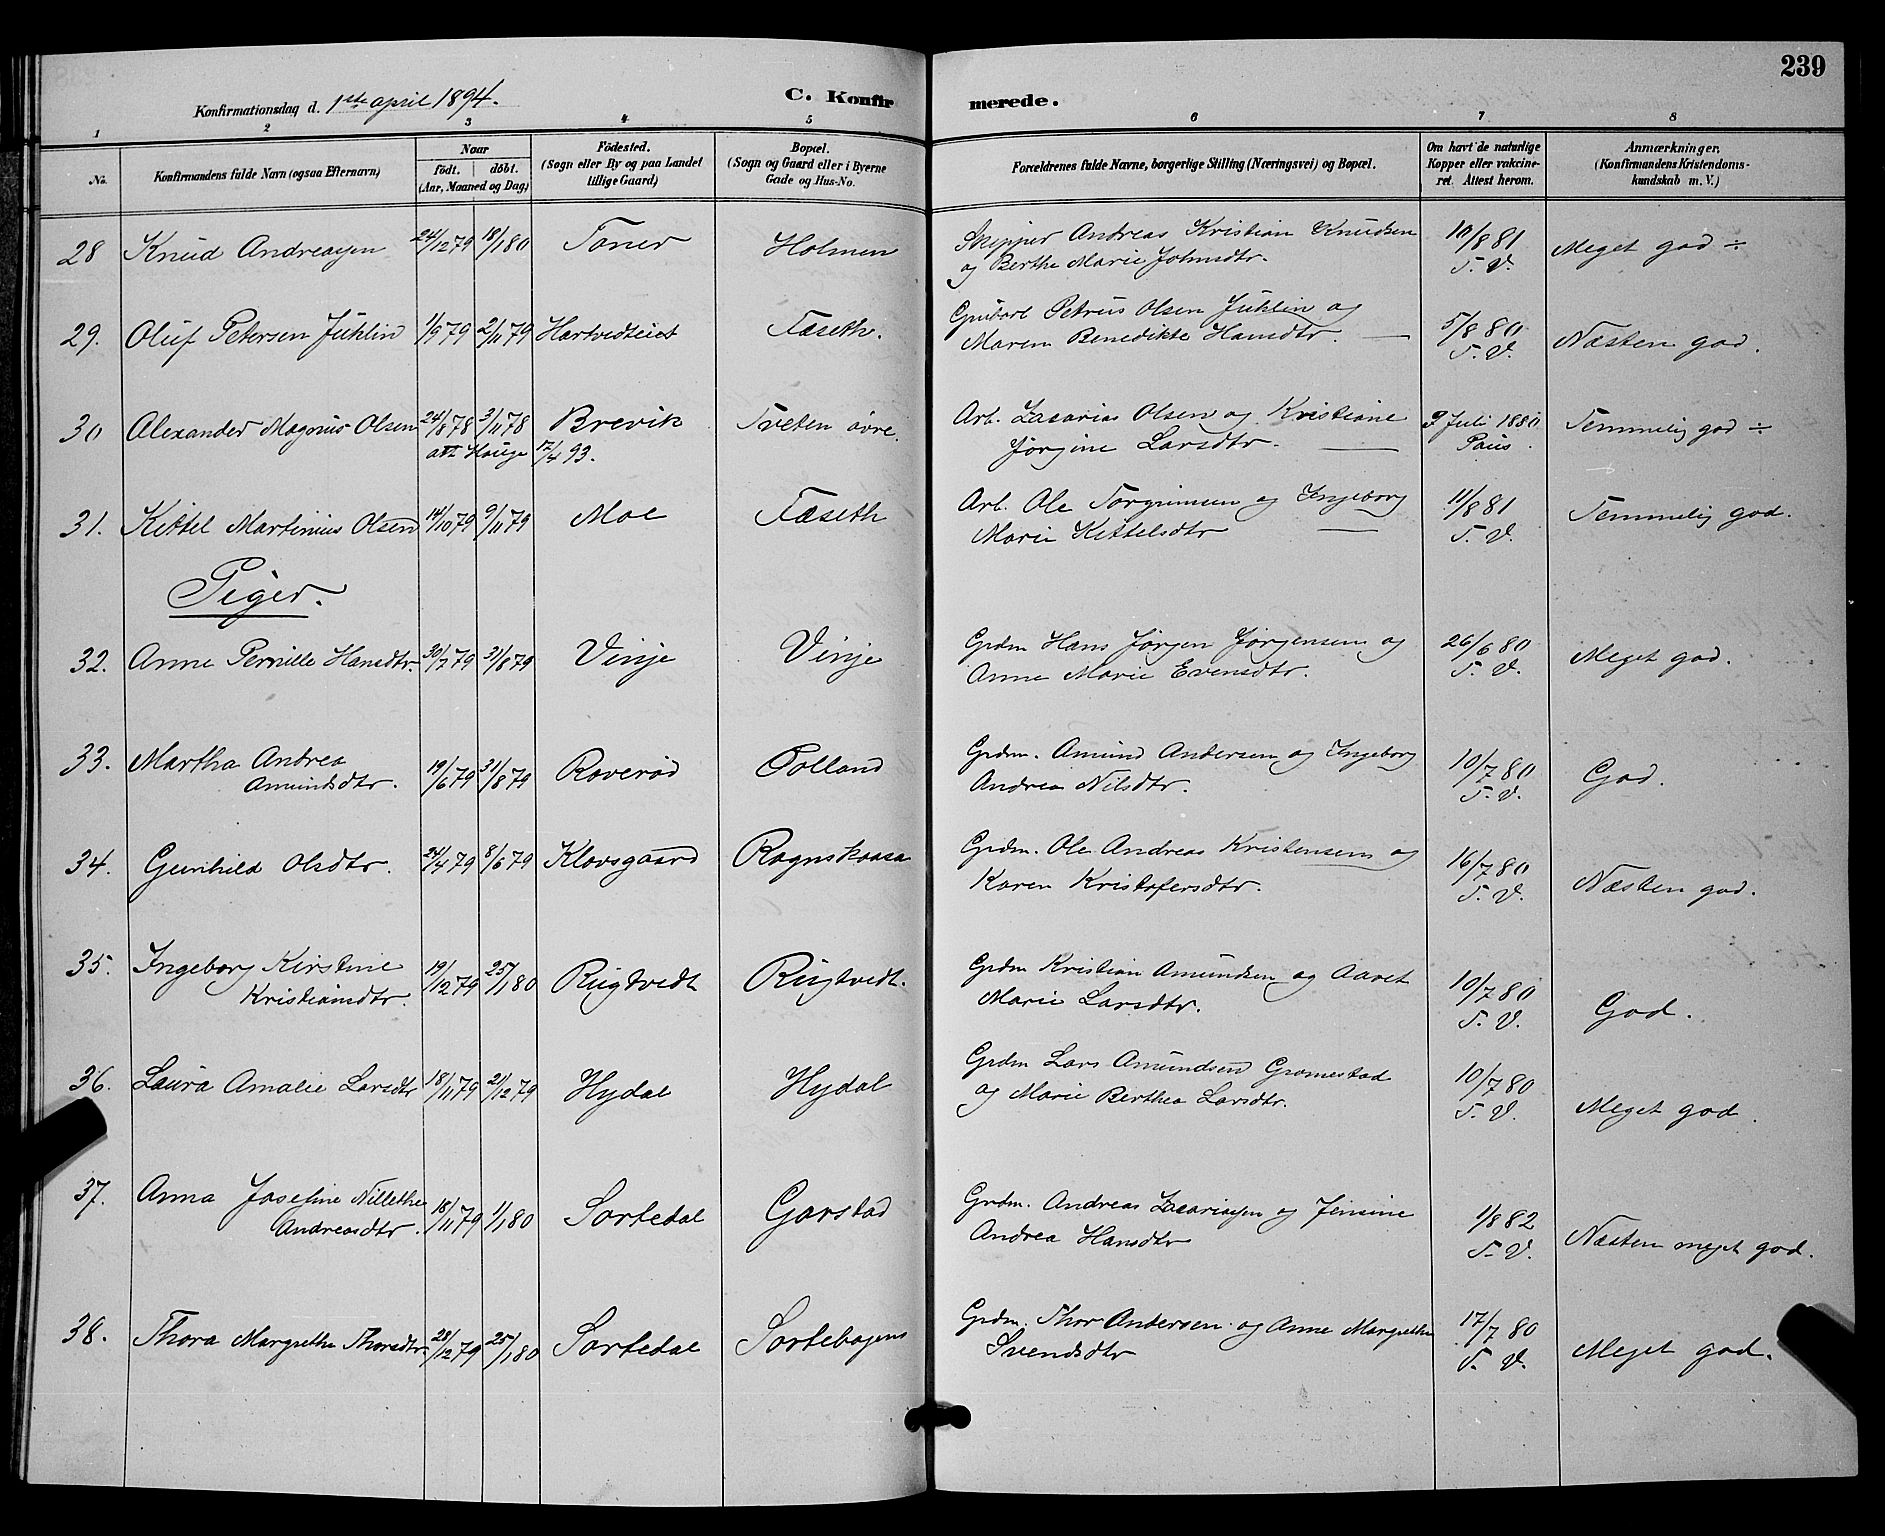 239
Konfirmationsdag d. 1ste april 1894.
C. Konfirmerede.
1 2 3 4 5 6 7 8
No.
Konfirmandens fulde Navn (ogsaa Efternavn)
Naar
født. døbt.
(Aar, Maaned og Dag)
Fødested.
(Sogn eller By og paa Landet
tillige Gaard)
Bopæl.
(Sogn og Gaard eller i Byerne
Gade og Hus-No.
Forældrenes fulde Navne, borgerlige Stilling (Næringsvei) og Bopæl.
Om havt de naturlige
Kopper eller vakcine-
ret. Attest herom.
Anmærkninger.
(Konfirmandens Kristendoms-
kundskab m. V.)
28 Knud Andreasen 24/12 79 18/1 80 Toner Holmen Skipper Andreas Kristian Knudsen 10/8 81 Meget god ÷
og Berthe Marie Johnsdtr. T. V.
29. Oluf Petersen Juhlin 1/9 79 2/11 79 Hartvedteiet Fæseth. Petrus Olsen Juhlin og 5/8 80 Næsten god.
Maren Benedikte Hansdtr. — T. V.
30 Alexander Magnus Olsen 24/8 78 3/11 78 Brevik Tveten øvre. Arb. Zacarias Olsen og Kristiane Juli 1880 Temmelig god ÷
att Hauge 17/4 93. Jørgine Larsdtr. — Paus.
31. Kittel Martinius Olsen 14/10 79 9/11 79 Moe Fæseth Arb. Ole Torgrimsen og Ingeborg 11/8 81 Temmelig god.
Marie Kittelsdtr — T. V.
Piger.
32. Anne Pernille Hansdtr. 30/7 79 31/8 79 Vinje Vinje Grdm Hans Jørgen Jørgensen og 26/6 80 Meget god.
Anne Marie Evensdtr. T. V.
33. Martha Andrea 19/6 79 31/8 79 Roverød Grdm. Amund Andersen og Ingeborg 10/7 80 God.
Amundsdtr. Andrea Nilsdtr. T. V.
34. Gunhild Olsdtr. 24/4 79 8/6 79 Klovsgaard Rognskaasa Grdm. Ole Andreas Kristensen og 16/7 80 Næsten god.
Karen Kristofersdtr. T. V.
35. Ingeborg Kirstine 19/12 79 25/1 80 Rugtvedt Rugtvedt. Grdm Kristian Amundsen og Aaret 10/7 80 God.
Kristiansdtr. Marie Larsdtr. T. V.
36. Laura Amalie Larsdtr 18/11 79 21/12 79 Hydal Hydal Grdm Lars Amundsen Gromestad 10/7 80 Meget god.
og Marie Berthea Larsdtr. T. V.
37. Anna Josefine Nillethe 18/11 79 1/1 80 Sortedal Garstad Grdm. Andreas Zacariasen og Jensine 1/8 82 Næsten meget god.
Andreasdtr. Andrea Hansdtr T. V.
38. Thora Margrethe Thorsdtr. 23/12 79 25/1 80 Sortedal Sortebogens Grdm. Thor Andersen og Anne Margrethe 17/7 80 Meget god.
Svendsdtr T. V.